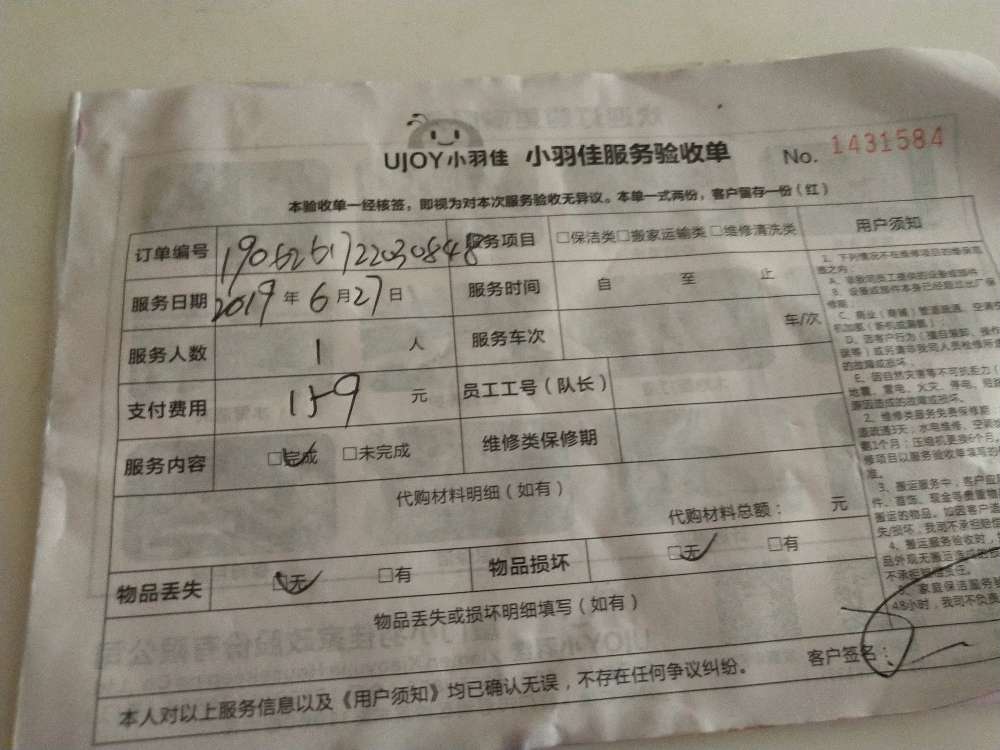 UJOY小羽佳 小羽佳服务验收单 No. 1431584
本验收单一经核签，即视为对本次服务验收无异议。本单一式两份，客户留存一份（红）
订单编号 服务项目 □保洁类□搬家运输类□维修清洗类
服务日期 2019年6月27日 服务时间 自 至 止
服务人数 1 人 服务车次 车/次
支付费用 159 元 员工工号（队长）
服务内容 □完成 □未完成 维修类保修期
代购材料明细（如有）
代购材料总额： 元
物品丢失 □无 □有 物品损坏 □无 □有
物品丢失或损坏明细填写（如有）
本人对以上服务信息以及《用户须知》均已确认无误，不存在任何争议纠纷。 客户签名：
用户须知
1、下列情况不在维修项目的维保范
围之内：
A、非我司员工提供的设备或部件
B、设备或部件本身已经超过出厂保
修期；
C、商业（商铺）管道疏通、空调
机加氨（新机或漏氨）；
E、因自然灾害等不可抗拒力（
地震、雷电、火灾、停电、
2、维修类服务免费保修期：
道疏通3天；水电维修、空调
第1个月；压缩机更换6个月，
修项目以服务验收单填写的
准。
3、搬运服务中，客户应
件、首饰、现金等贵重物
搬运的物品。如因客户
失/损坏，我司不承担赔
4、搬运服务验收时，
品外观无搬运造成的
不承担赔偿责任。
5、家庭保洁服务
48小时，我司不负责